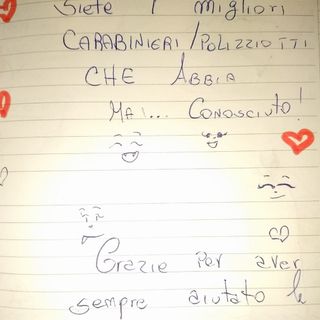 Siete i Migliori
CARABINIERI/POLIZZIOTTI
CHE ABBIA
MAI... CONOSCIUTO!
Grazie Per aver
sempre aiutato le